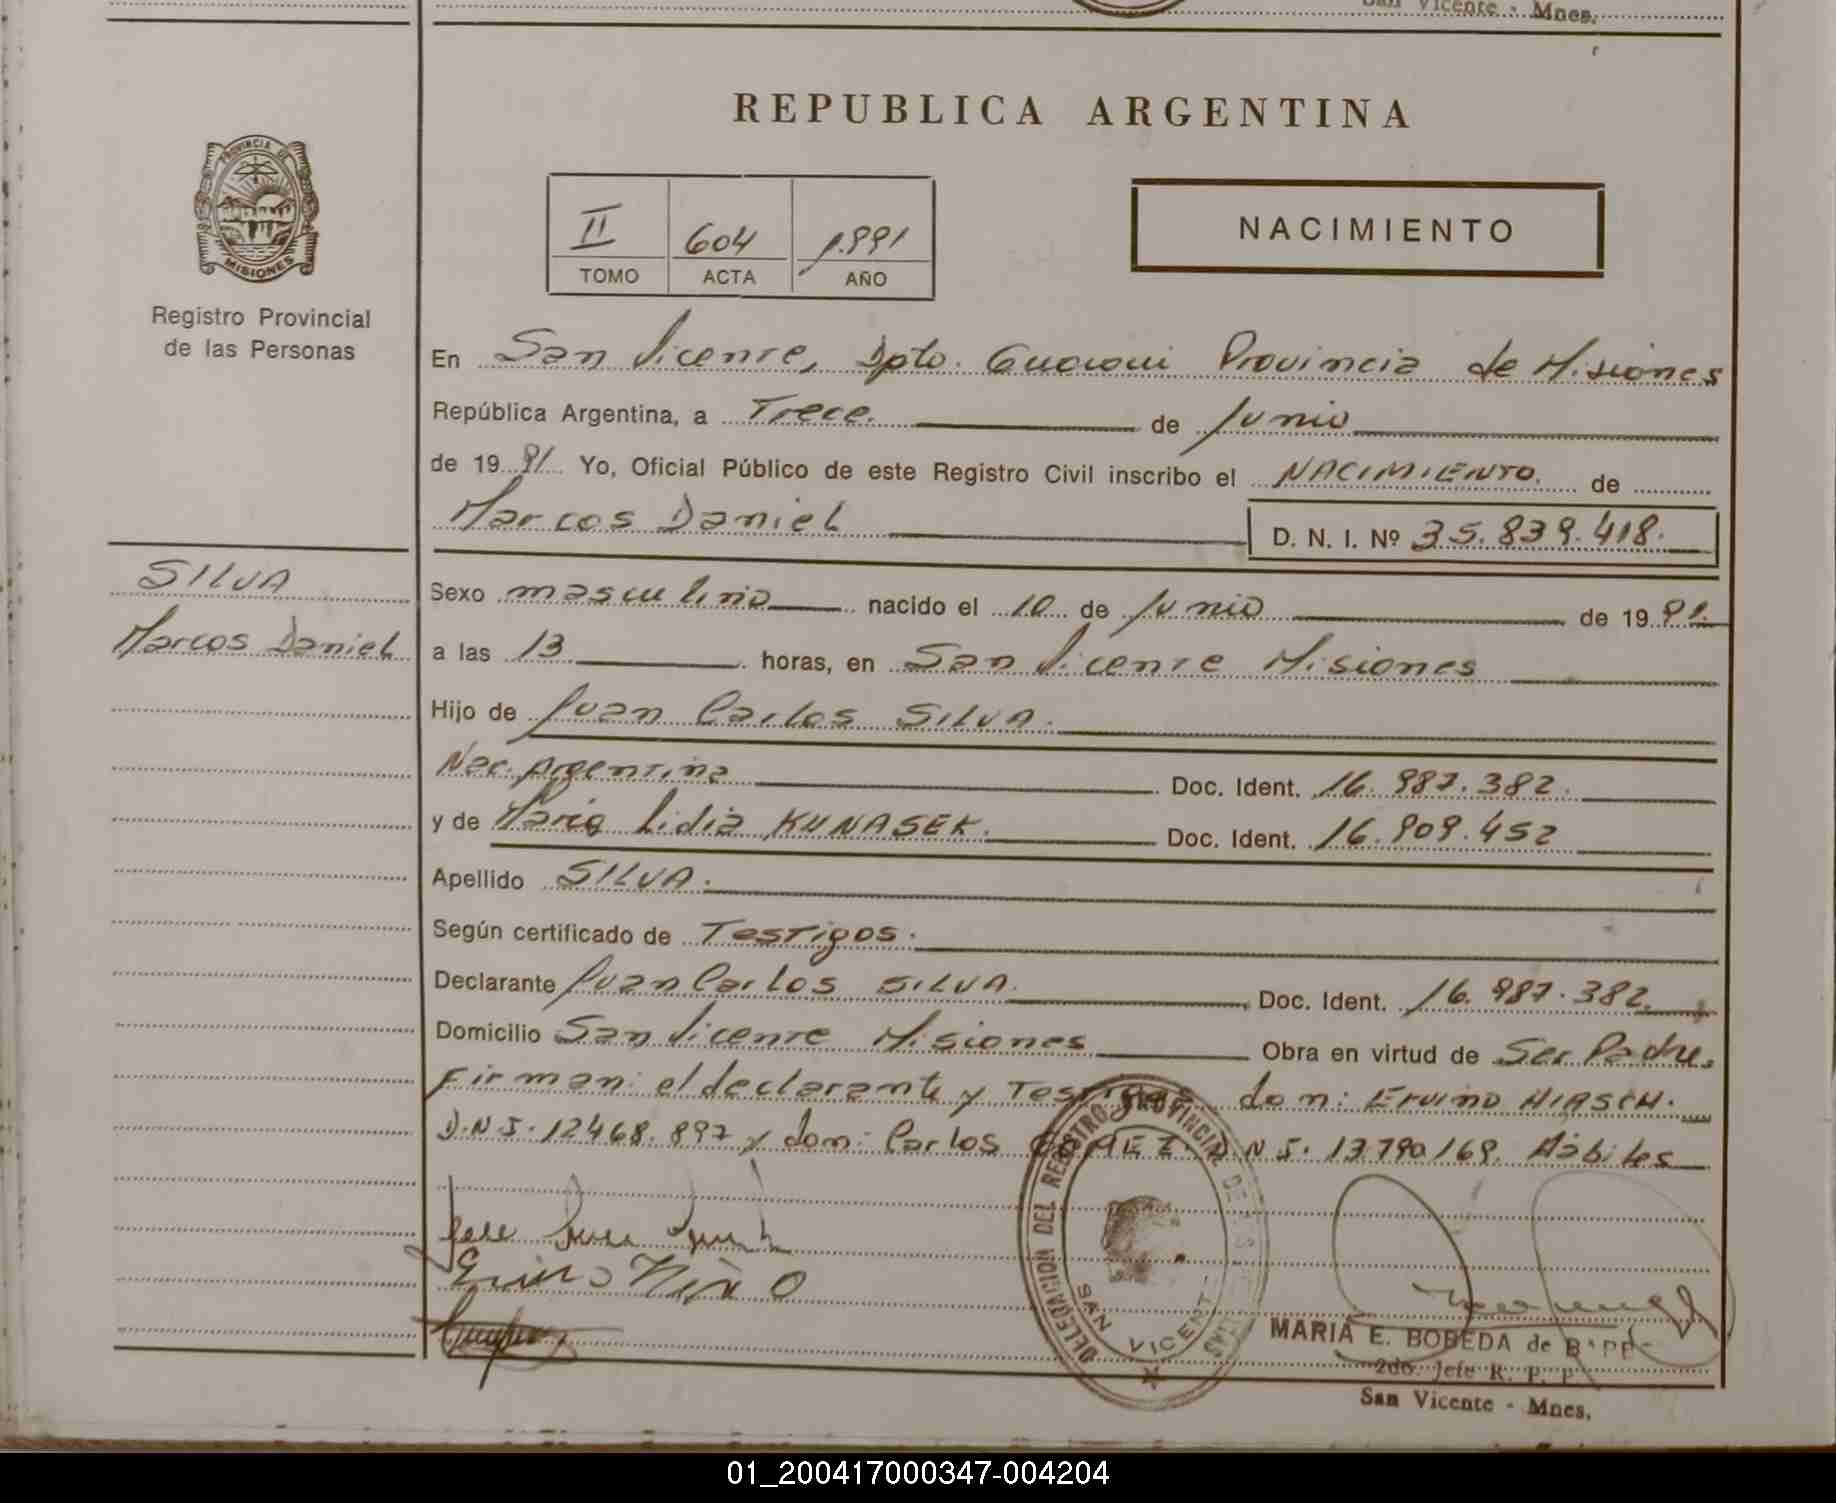 San Vicente - Mnes.
REPUBLICA ARGENTINA
PROVINCIA DE
MISIONES
Registro Provincial
de las Personas
II 604 1.991
TOMO ACTA AÑO
NACIMIENTO
En San Vicente, Dpto. Guaraní Provincia de Misiones
República Argentina, a Trece. de Junio
de 1991 Yo, Oficial Público de este Registro Civil inscribo el NACIMIENTO. de
Marcos Daniel D. N. I. Nº 35.839.418.
SILVA
Marcos Daniel
Sexo masculino nacido el 10 de Junio de 1991.
a las 13 horas, en San Vicente Misiones
Hijo de Juan Carlos SILVA.
Nac. Argentina Doc. Ident. 16.987.382.
y de María Lidia KUNASEK. Doc. Ident. 16.909.452
Apellido SILVA.
Según certificado de Testigos.
Declarante Juan Carlos SILVA. Doc. Ident. 16.987.382.
Domicilio San Vicente Misiones Obra en virtud de Ser Padre.
Firman: el declarante y Testigos don: Ervino HIRSCH.
D.N.I. 12468.897 y don: Carlos GOMEZ. D.N.I. 13790169. Hábiles
DELEGACION DEL REGISTRO PROVINCIAL DE LAS PERSONAS
SAN VICENTE
MARIA E. BOBEDA de
2do. Jefe R. P. P.
San Vicente - Mnes.
01_200417000347-004204